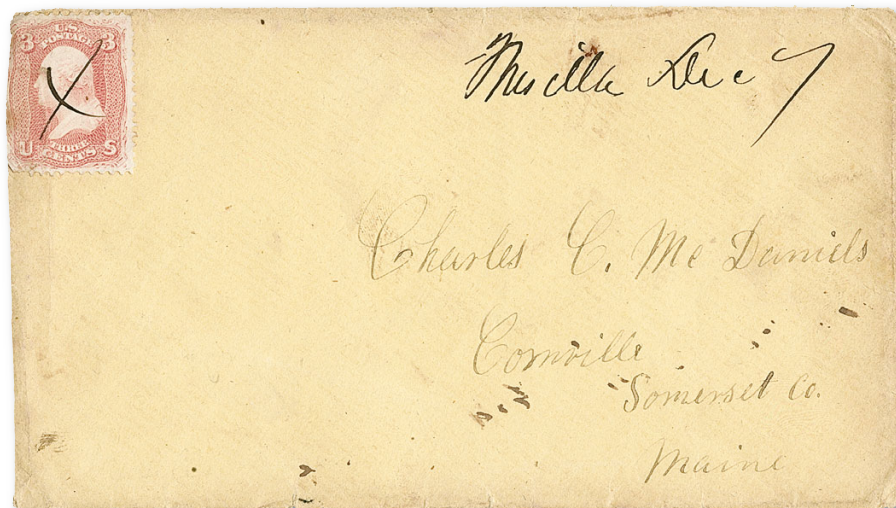 3 U.S. 3
POSTAGE
THREE
U CENTS S
Mesilla Dec 7
Charles C. Mc Daniels
Cornville
Somerset Co.
Maine